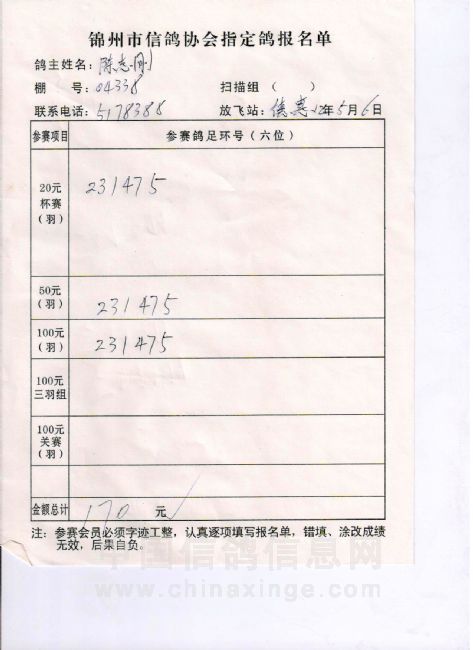 锦州市信鸽协会指定鸽报名单
鸽主姓名：陈志刚
棚　号：04338　扫描组（　）
联系电话：5178388　放飞站：12年5月6日
参赛项目　参赛鸽足环号（六位）
20元
杯赛
（羽）
231475
50元
（羽）
231475
100元
（羽）
231475
100元
三羽组
100元
关赛
（羽）
金额总计　170　元
注：参赛会员必须字迹工整，认真逐项填写报名单，错填、涂改成绩
无效，后果自负。
中国信鸽信息网
www.chinaxinge.com